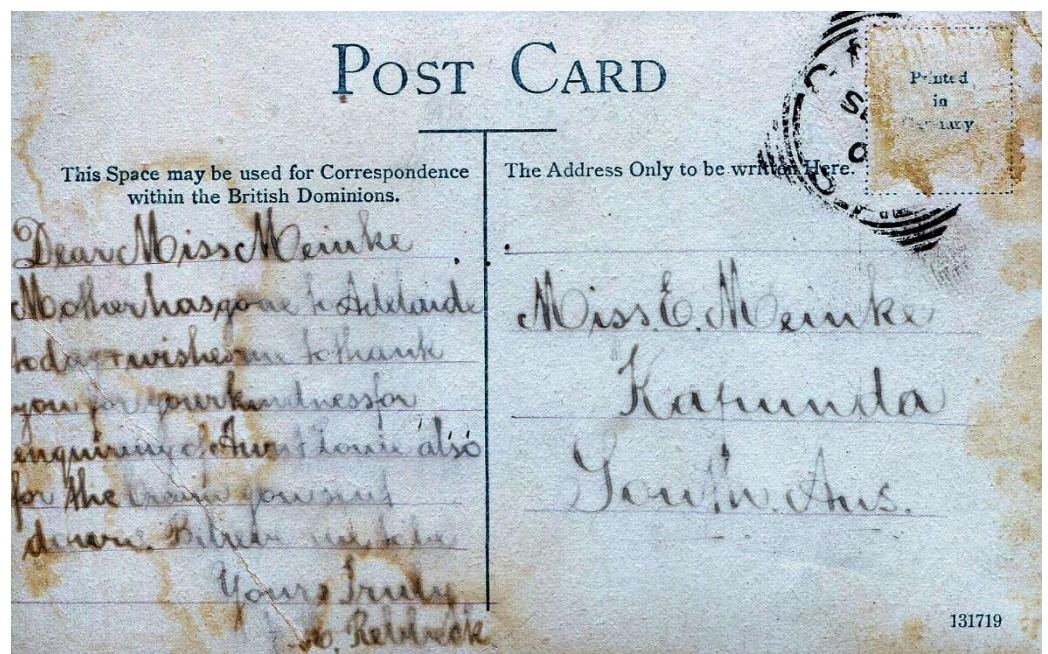 POST CARD
Printed
in
Germany
This Space may be used for Correspondence
within the British Dominions.
The Address Only to be written Here.
Dear Miss Meinke
Mother has gone to Adelaide
today + wishes me to thank
you for your kindness for
enquiring of Aunt Louie also
for the cream you sent
down. Believe me to be
Yours Truly
Rebbeck
Miss. E. Meinke
Kapunda
South. Aus.
131719